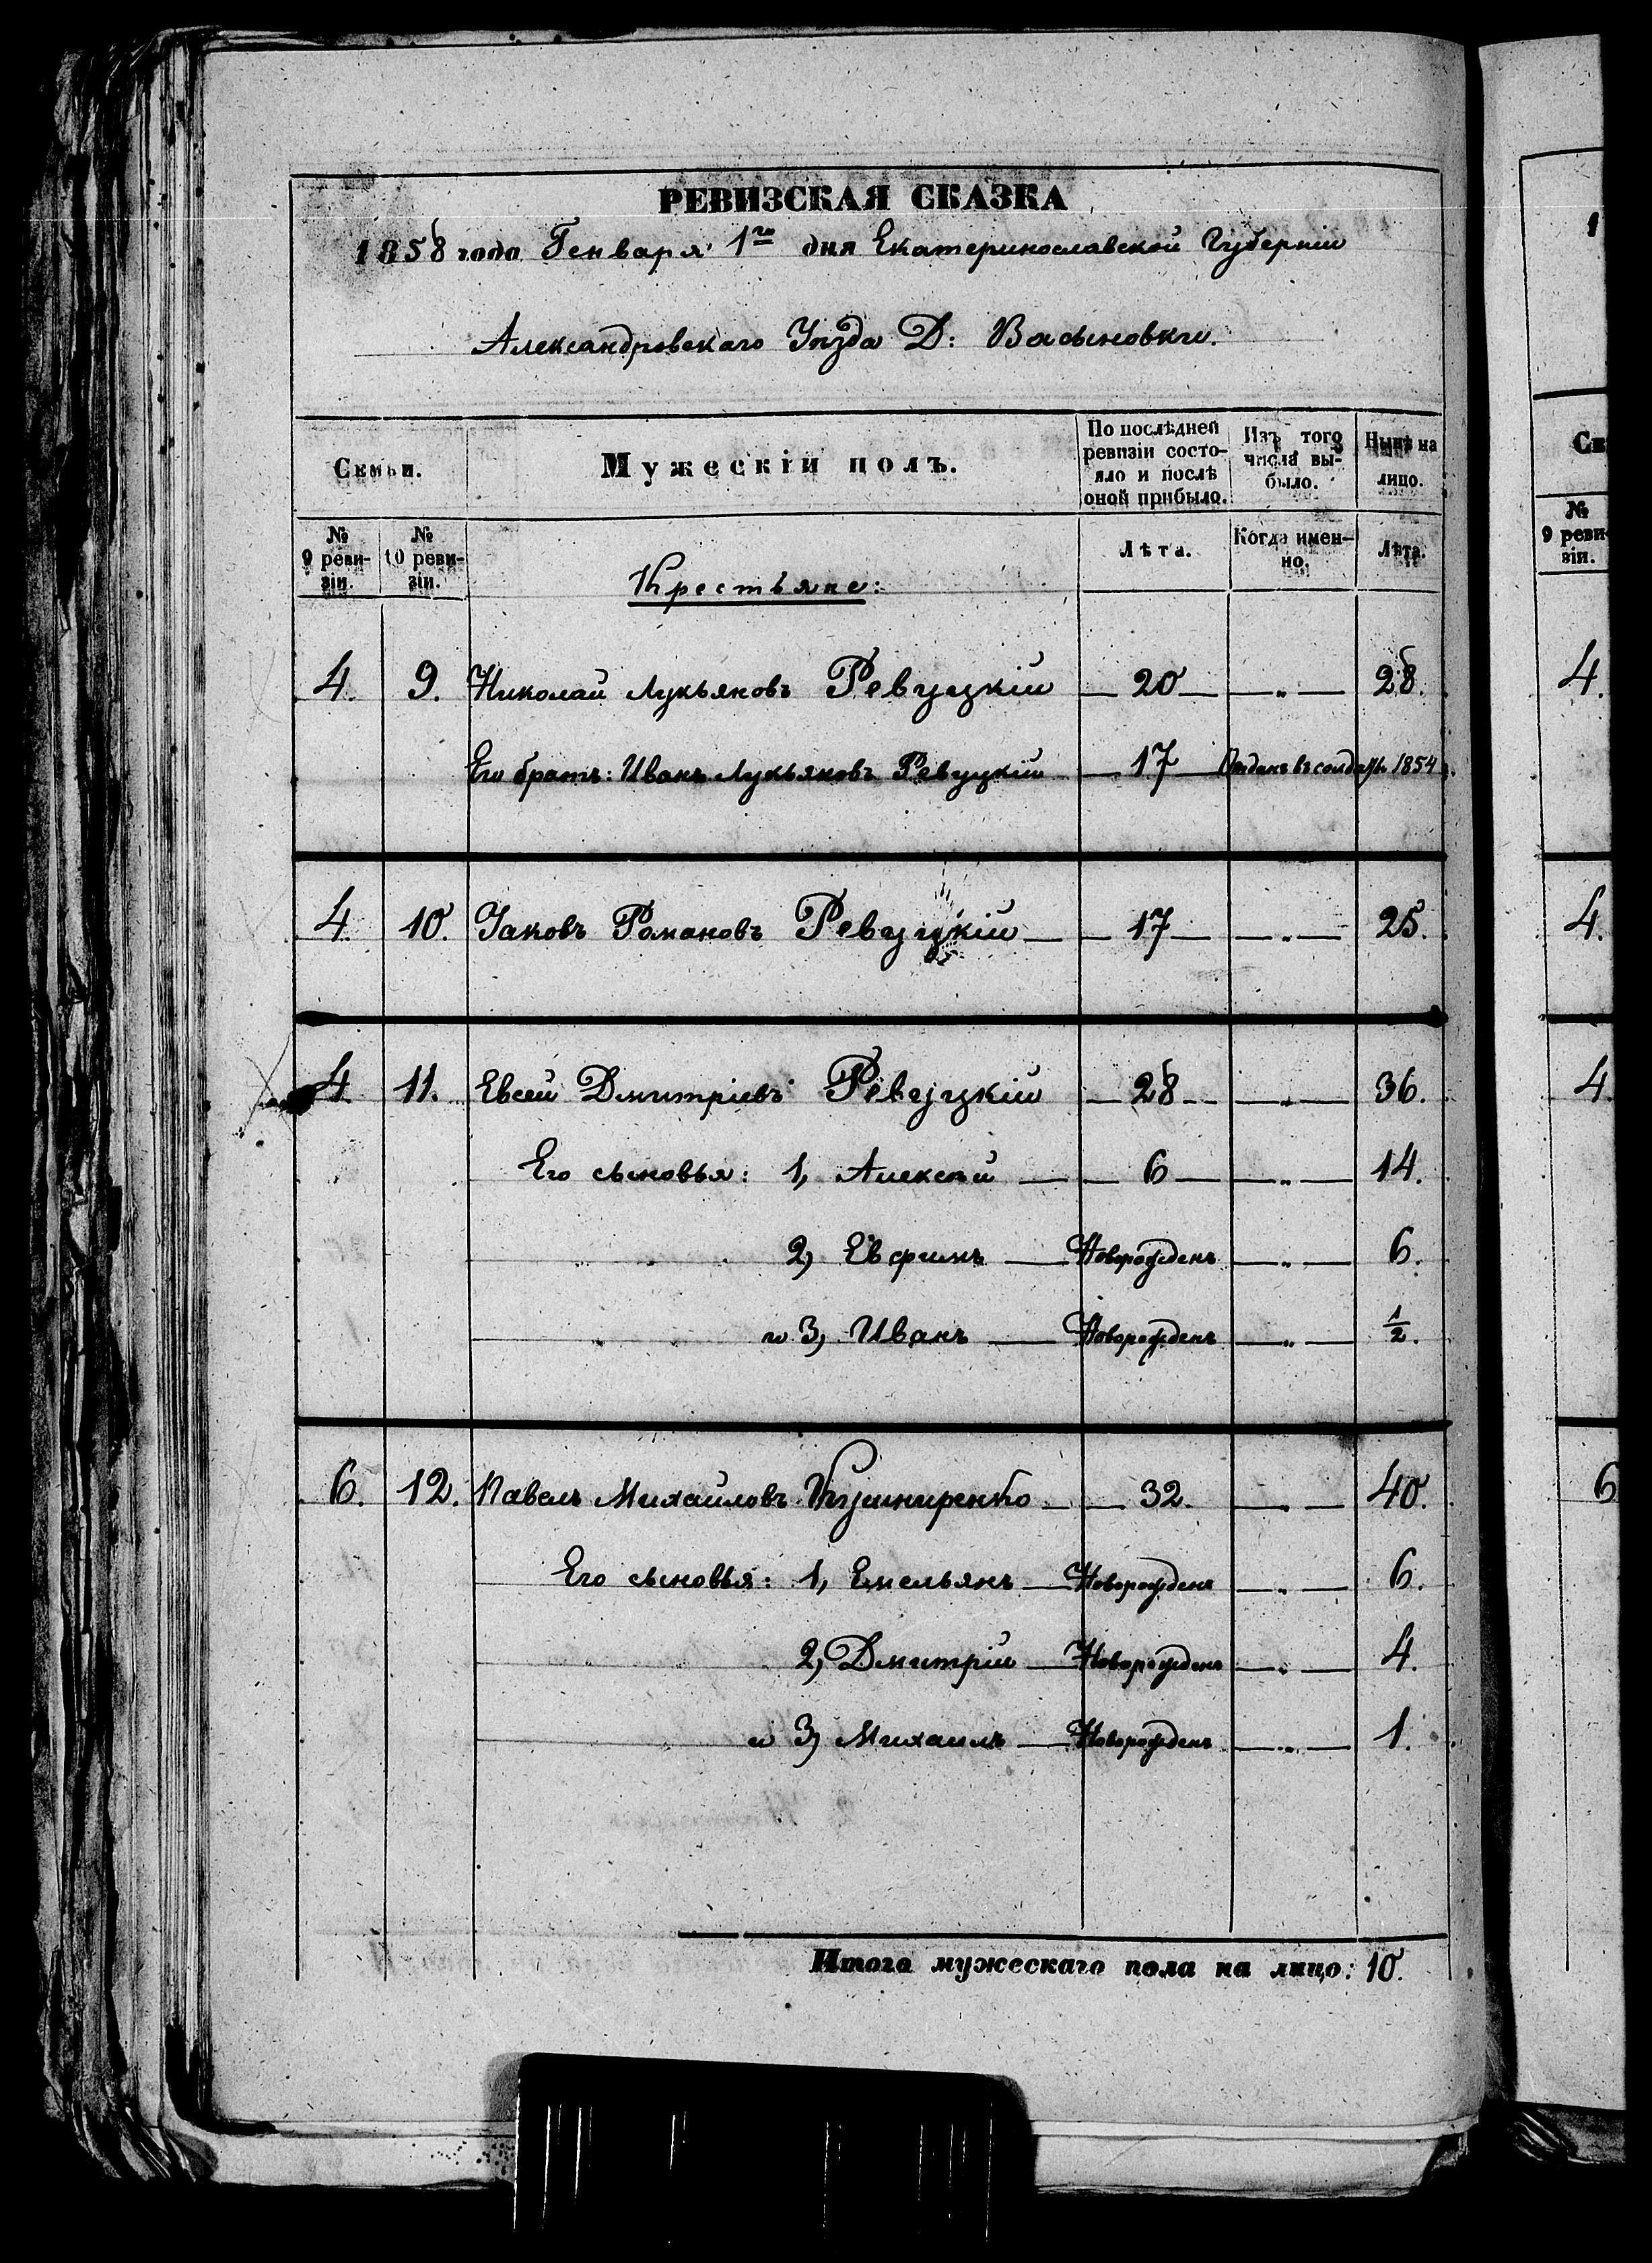 РЕВИЗСКАЯ СКАЗКА
1858 года Генваря 1го дня Екатеринославской Губерніи
Александровскаго Уѣзда Д: Васыновки.
Семьи.
Мужескій полъ.
По послѣдней ревизіи состояло и послѣ оной прибыло.
Изъ того числа выбыло.
Нынѣ на лицо.
№ 9 ревизіи.
№ 10 ревизіи.
Лѣта.
Когда именно.
Лѣта.
Крестьяне:
4. 9. Николай Лукьяновъ Ревуцкій — 20 — — „ — 28.
Его братъ: Иванъ Лукьяновъ Ревуцкій — 17 — Отданъ въ солдаты 1854
4. 10. Іаковъ Романовъ Ревуцкій — — 17 — — „ — 25.
4. 11. Евсей Дмитріевъ Ревуцкій — 28 — — „ — 36.
Его сыновья: 1, Алексѣй — — 6 — — „ — 14.
2, Евфимъ — Новорожденъ — „ — 6.
и 3, Иванъ — Новорожденъ — „ — 1/2.
6. 12. Павелъ Михайловъ Кушниренко — — 32. — „ — 40.
Его сыновья: 1, Емельянъ — Новорожденъ — „ — 6.
2, Дмитрій — Новорожденъ — „ — 4.
и 3, Михаилъ — Новорожденъ — „ — 1.
Итого мужескаго пола на лицо: 10.
1
Се
№ 9 реви-
зіи.
4.
4.
4.
6